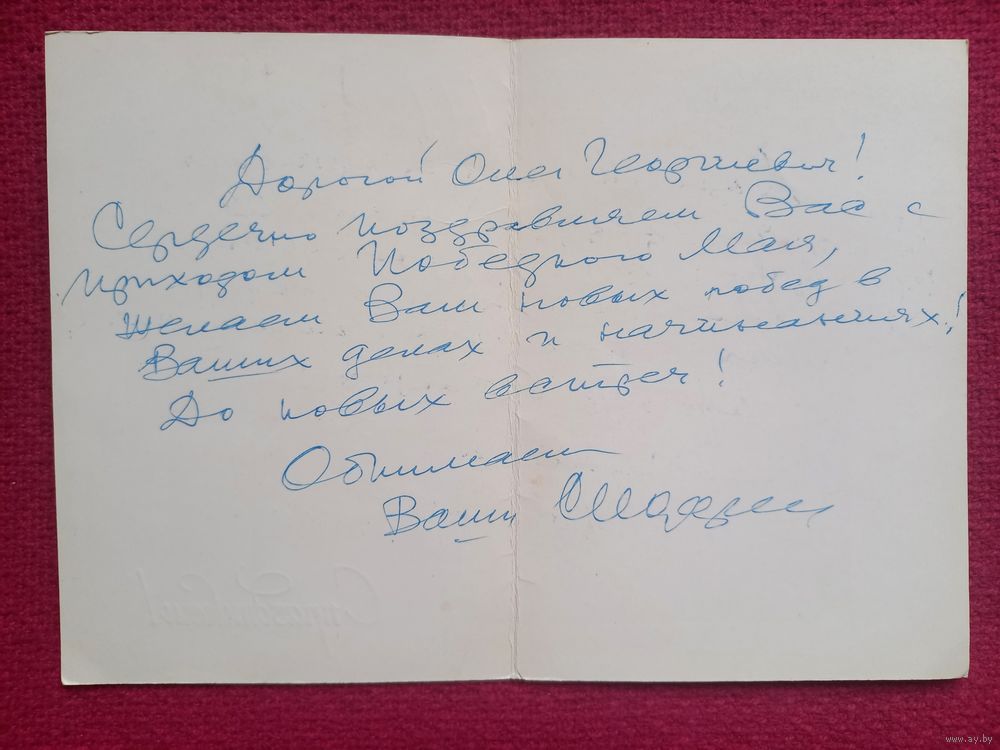 Дорогой Олег Георгиевич!
Сердечно поздравляем Вас с
приходом Победного Мая,
желаем Вам новых побед в
Ваших делах и начинаниях!
До новых встреч!
Обнимаем
Ваши
С праздником!
www.ay.by